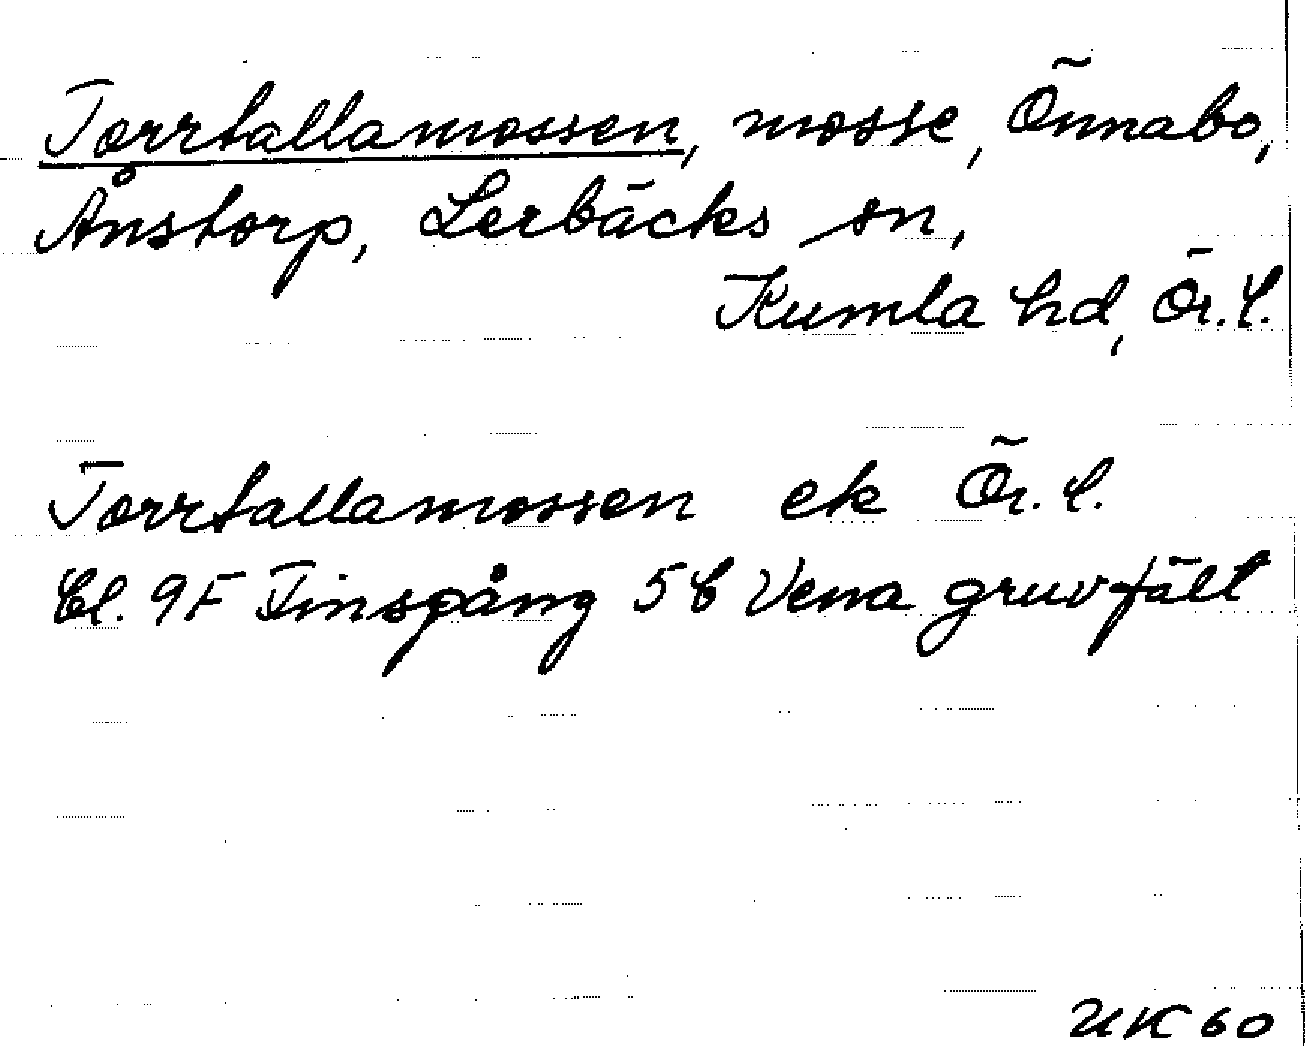 Torrtallamossen, mosse, Önnabo,
Ånstorp, Lerbäcks sn,
Kumla hd, Ör. l.
Torrtallamossen ek Ör. l.
Bl. 9F Finspång 5b Vena gruvfält
UK 60